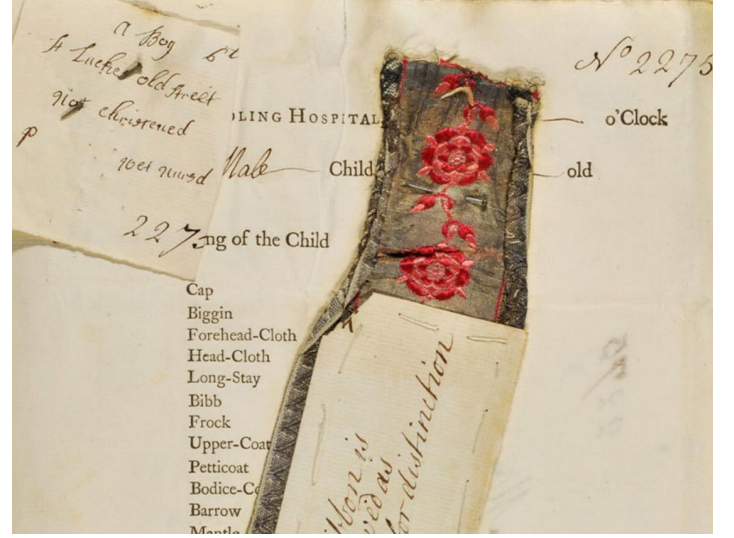 a Boy
St Lukes old Street
not christened
P
not nursd
2275
No 2275
DLING HOSPITAL, o'Clock
Male Child old
ng of the Child
Cap
Biggin
Forehead-Cloth
Head-Cloth
Long-Stay
Bibb
Frock
Upper-Coat
Petticoat
Bodice-Co
Barrow
Mantle
bbon is
as
for distinction